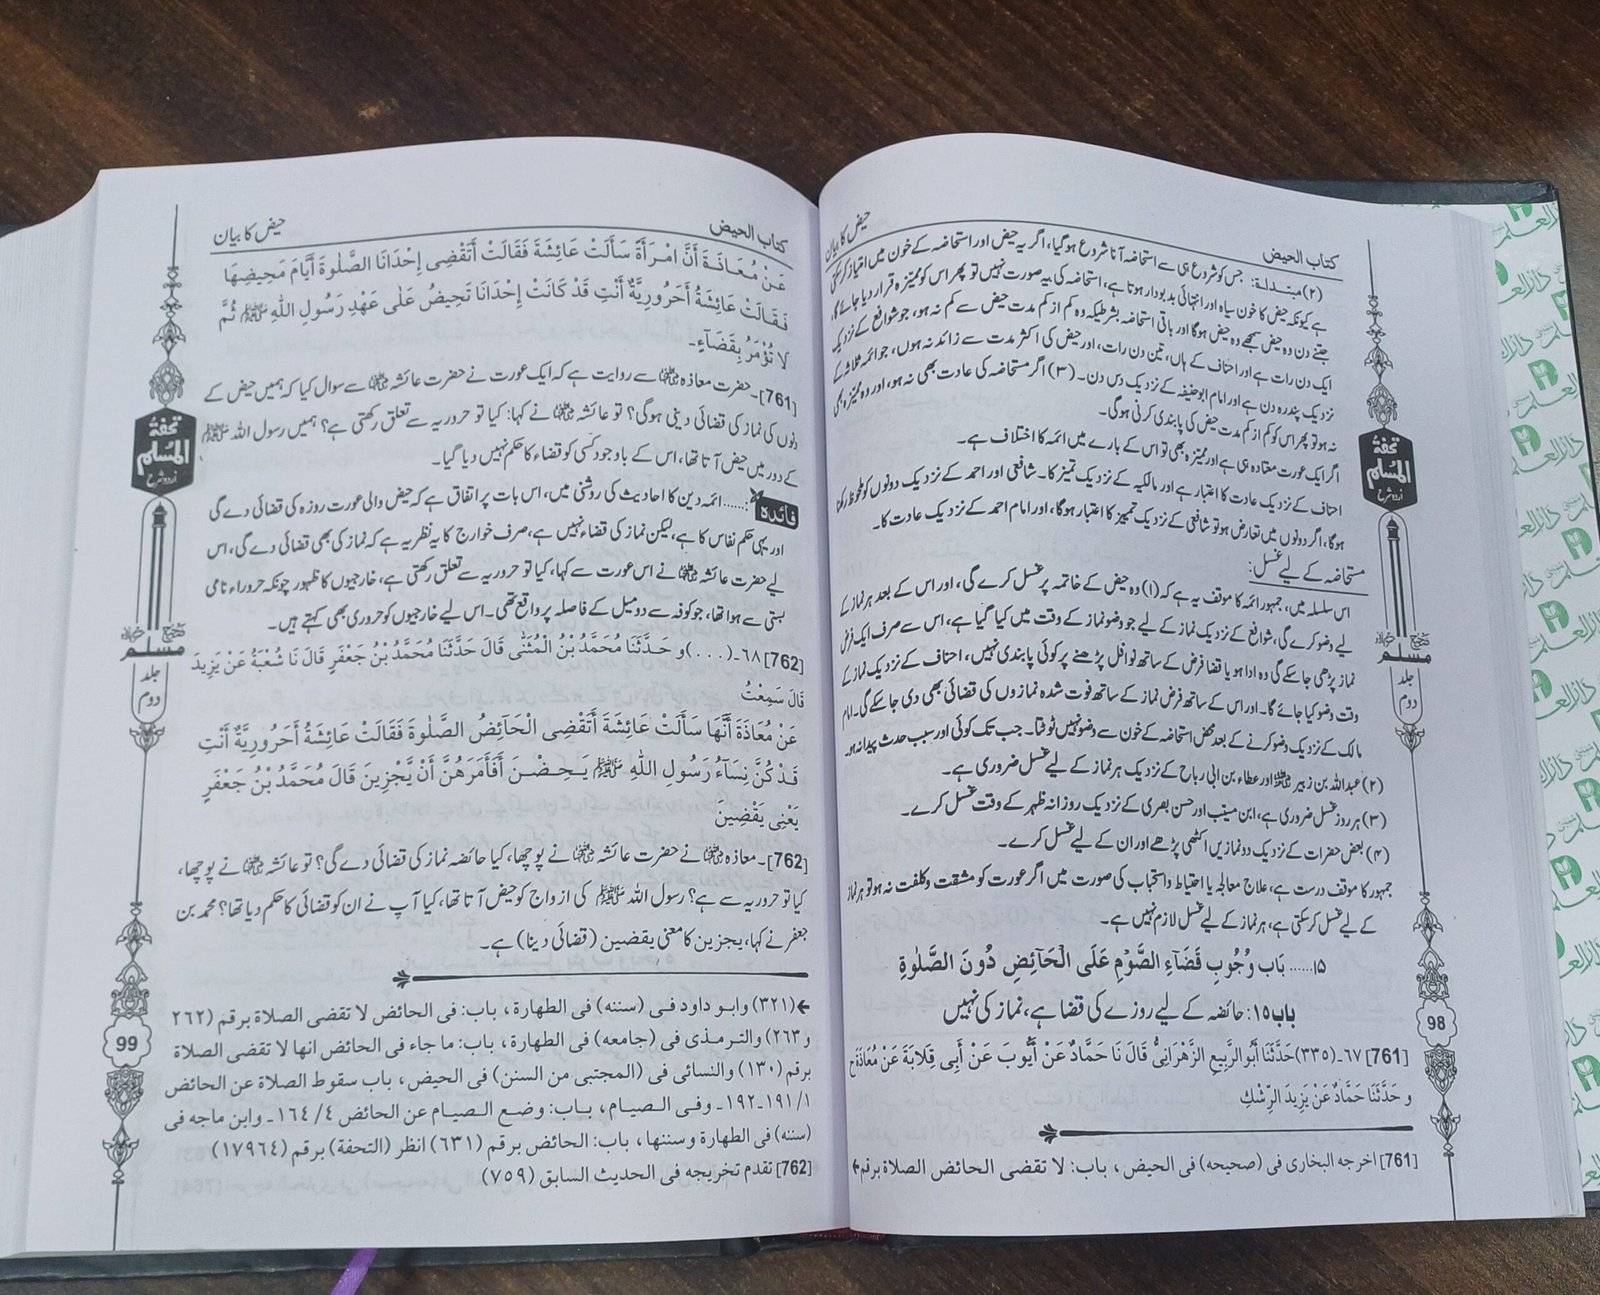 كتاب الحيض
حیض کا بیان
(۲) مبتدلۃ: جس کو شروع ہی سے استحاضہ آنا شروع ہوگیا، اگر یہ حیض اور استحاضہ کے خون میں امتیاز کرسکتی
ہے کیونکہ حیض کا خون سیاہ اور انتہائی بدبودار ہوتا ہے، استحاضہ کی یہ صورت نہیں تو پھر اس کو ممیزہ قرار دیا جائے گا،
جتنے دن وہ حیض سمجھے وہ حیض ہوگا اور باقی استحاضہ بشرطیکہ وہ کم از کم مدت حیض سے کم نہ ہو، جو شوافع کے نزدیک
ایک دن رات ہے اور احناف کے ہاں، تین دن رات، اور حیض کی اکثر مدت سے زائد نہ ہوں، جو ائمہ ثلاثہ کے
نزدیک پندرہ دن ہے اور امام ابوحنیفہ کے نزدیک دس دن۔ (۳) اگر مستحاضہ کی عادت بھی نہ ہو، اور وہ ممیزہ بھی
نہ ہو تو پھر اس کو کم از کم مدت حیض کی پابندی کرنی ہوگی۔
اگر ایک عورت معتادہ ہی ہے اور ممیزہ بھی تو اس کے بارے میں ائمہ کا اختلاف ہے۔
احناف کے نزدیک عادت کا اعتبار ہے اور مالکیہ کے نزدیک تمیز کا۔ شافعی اور احمد کے نزدیک دونوں کو ملحوظ رکھنا
ہوگا، اگر دونوں میں تعارض ہو تو شافعی کے نزدیک تمییز کا اعتبار ہوگا، اور امام احمد کے نزدیک عادت کا۔
مستحاضہ کے لیے غسل:
اس سلسلہ میں، جمہور ائمہ کا موقف یہ ہے کہ (۱) وہ حیض کے خاتمہ پر غسل کرے گی، اور اس کے بعد ہر نماز کے
لیے وضو کرے گی، شوافع کے نزدیک نماز کے لیے جو وضو نماز کے وقت میں کیا گیا ہے، اس سے صرف ایک فرض
نماز پڑھی جاسکے گی وہ ادا ہو یا قضا فرض کے ساتھ نوافل پڑھنے پر کوئی پابندی نہیں، احناف کے نزدیک نماز کے
وقت وضو کیا جائے گا۔ اور اس کے ساتھ فرض نماز کے ساتھ فوت شدہ نمازوں کی قضائی بھی دی جاسکے گی۔ امام
مالک کے نزدیک وضو کرنے کے بعد محض استحاضہ کے خون سے وضو نہیں ٹوٹتا۔ جب تک کوئی اور سبب حدث پیدا نہ ہو۔
(۲) عبداللہ بن زبیر رضی اللہ عنہ اور عطاء بن ابی رباح کے نزدیک ہر نماز کے لیے غسل ضروری ہے۔
(۳) ہر روز غسل ضروری ہے، ابن مسیب اور حسن بصری کے نزدیک روزانہ ظہر کے وقت غسل کرے۔
(۴) بعض حضرات کے نزدیک دو نمازیں اکٹھی پڑھے اور ان کے لیے غسل کرے۔
جمہور کا موقف درست ہے، علاج معالجہ یا احتیاط و استحباب کی صورت میں اگر عورت کو مشقت و کلفت نہ ہو تو ہر نماز
کے لیے غسل کرسکتی ہے، ہر نماز کے لیے غسل لازم نہیں ہے۔
۱۵...... بَاب وُجُوبِ قَضَآءِ الصَّوْمِ عَلَى الْحَآئِضِ دُونَ الصَّلٰوةِ
باب ۱۵: حائضہ کے لیے روزے کی قضا ہے، نماز کی نہیں
[761] ٦٧۔(٣٣٥) حَدَّثَنَا أَبُو الرَّبِيعِ الزَّهْرَانِيُّ قَالَ نَا حَمَّادٌ عَنْ أَيُّوبَ عَنْ أَبِي قِلَابَةَ عَنْ مُعَاذَةَ ح
و حَدَّثَنَا حَمَّادٌ عَنْ يَزِيدَ الرِّشْكِ
[761] اخرجه البخارى فى (صحيحه) فى الحيض، باب: لا تقضى الحائض الصلاة برقم←
تحفۃ
المسلم
اردو شرح
صحیح
مسلم
جلد
دوم
98
كتاب الحيض
حیض کا بیان
عَنْ مُعَاذَةَ أَنَّ امْرَأَةً سَأَلَتْ عَائِشَةَ فَقَالَتْ أَتَقْضِى إِحْدَانَا الصَّلٰوةَ أَيَّامَ مَحِيضِهَا
فَقَالَتْ عَائِشَةُ أَحَرُورِيَّةٌ أَنْتِ قَدْ كَانَتْ إِحْدَانَا تَحِيضُ عَلٰى عَهْدِ رَسُولِ اللّٰهِ ﷺ ثُمَّ
لَا تُؤْمَرُ بِقَضَآءٍ۔
[761]۔ حضرت معاذہ رضی اللہ عنہا سے روایت ہے کہ ایک عورت نے حضرت عائشہ رضی اللہ عنہا سے سوال کیا کہ ہمیں حیض کے
دنوں کی نماز کی قضائی دینی ہوگی؟ تو عائشہ رضی اللہ عنہا نے کہا: کیا تو حروریہ سے تعلق رکھتی ہے؟ ہمیں رسول اللہ ﷺ
کے دور میں حیض آتا تھا، اس کے باوجود کسی کو قضاء کا حکم نہیں دیا گیا۔
فائدہ:...... ائمہ دین کا احادیث کی روشنی میں، اس بات پر اتفاق ہے کہ حیض والی عورت روزہ کی قضائی دے گی
اور یہی حکم نفاس کا ہے، لیکن نماز کی قضاء نہیں ہے، صرف خوارج کا یہ نظریہ ہے کہ نماز کی بھی قضائی دے گی، اس
لیے حضرت عائشہ رضی اللہ عنہا نے اس عورت سے کہا، کیا تو حروریہ سے تعلق رکھتی ہے، خارجیوں کا ظہور چونکہ حروراء نامی
بستی سے ہوا تھا، جو کوفہ سے دو میل کے فاصلہ پر واقع تھی۔ اس لیے خارجیوں کو حروری بھی کہتے ہیں۔
[762] ٦٨۔(...) و حَدَّثَنَا مُحَمَّدُ بْنُ الْمُثَنّٰى قَالَ حَدَّثَنَا مُحَمَّدُ بْنُ جَعْفَرٍ قَالَ نَا شُعْبَةُ عَنْ يَزِيدَ
قَالَ سَمِعْتُ
عَنْ مُعَاذَةَ أَنَّهَا سَأَلَتْ عَائِشَةَ أَتَقْضِى الْحَآئِضُ الصَّلٰوةَ فَقَالَتْ عَائِشَةُ أَحَرُورِيَّةٌ أَنْتِ
قَدْ كُنَّ نِسَآءُ رَسُولِ اللّٰهِ ﷺ يَحِضْنَ أَفَأَمَرَهُنَّ أَنْ يَّجْزِينَ قَالَ مُحَمَّدُ بْنُ جَعْفَرٍ
يَعْنِى يَقْضِينَ
[762]۔ معاذہ رضی اللہ عنہا نے حضرت عائشہ رضی اللہ عنہا سے پوچھا، کیا حائضہ نماز کی قضائی دے گی؟ تو عائشہ رضی اللہ عنہا نے پوچھا،
کیا تو حروریہ سے ہے؟ رسول اللہ ﷺ کی ازواج کو حیض آتا تھا، کیا آپ نے ان کو قضائی کا حکم دیا تھا؟ محمد بن
جعفر نے کہا، یجزین کا معنی یقضین (قضائی دینا) ہے۔
←(٣٢١) وابو داود فى (سننه) فى الطهارة، باب: فى الحائض لا تقضى الصلاة برقم (٢٦٢
و٢٦٣) والترمذى فى (جامعه) فى الطهارة، باب: ما جاء فى الحائض انها لا تقضى الصلاة
برقم (١٣٠) والنسائى فى (المجتبى من السنن) فى الحيض، باب سقوط الصلاة عن الحائض
١/١٩١۔١٩٢۔ وفى الصيام، باب: وضع الصيام عن الحائض ٤/١٦٤۔ وابن ماجه فى
(سننه) فى الطهارة وسننها، باب: الحائض برقم (٦٣١) انظر (التحفة) برقم (١٧٩٦٤)
[762] تقدم تخريجه فى الحديث السابق (٧٥٩)
تحفۃ
المسلم
اردو شرح
صحیح
مسلم
جلد
دوم
99